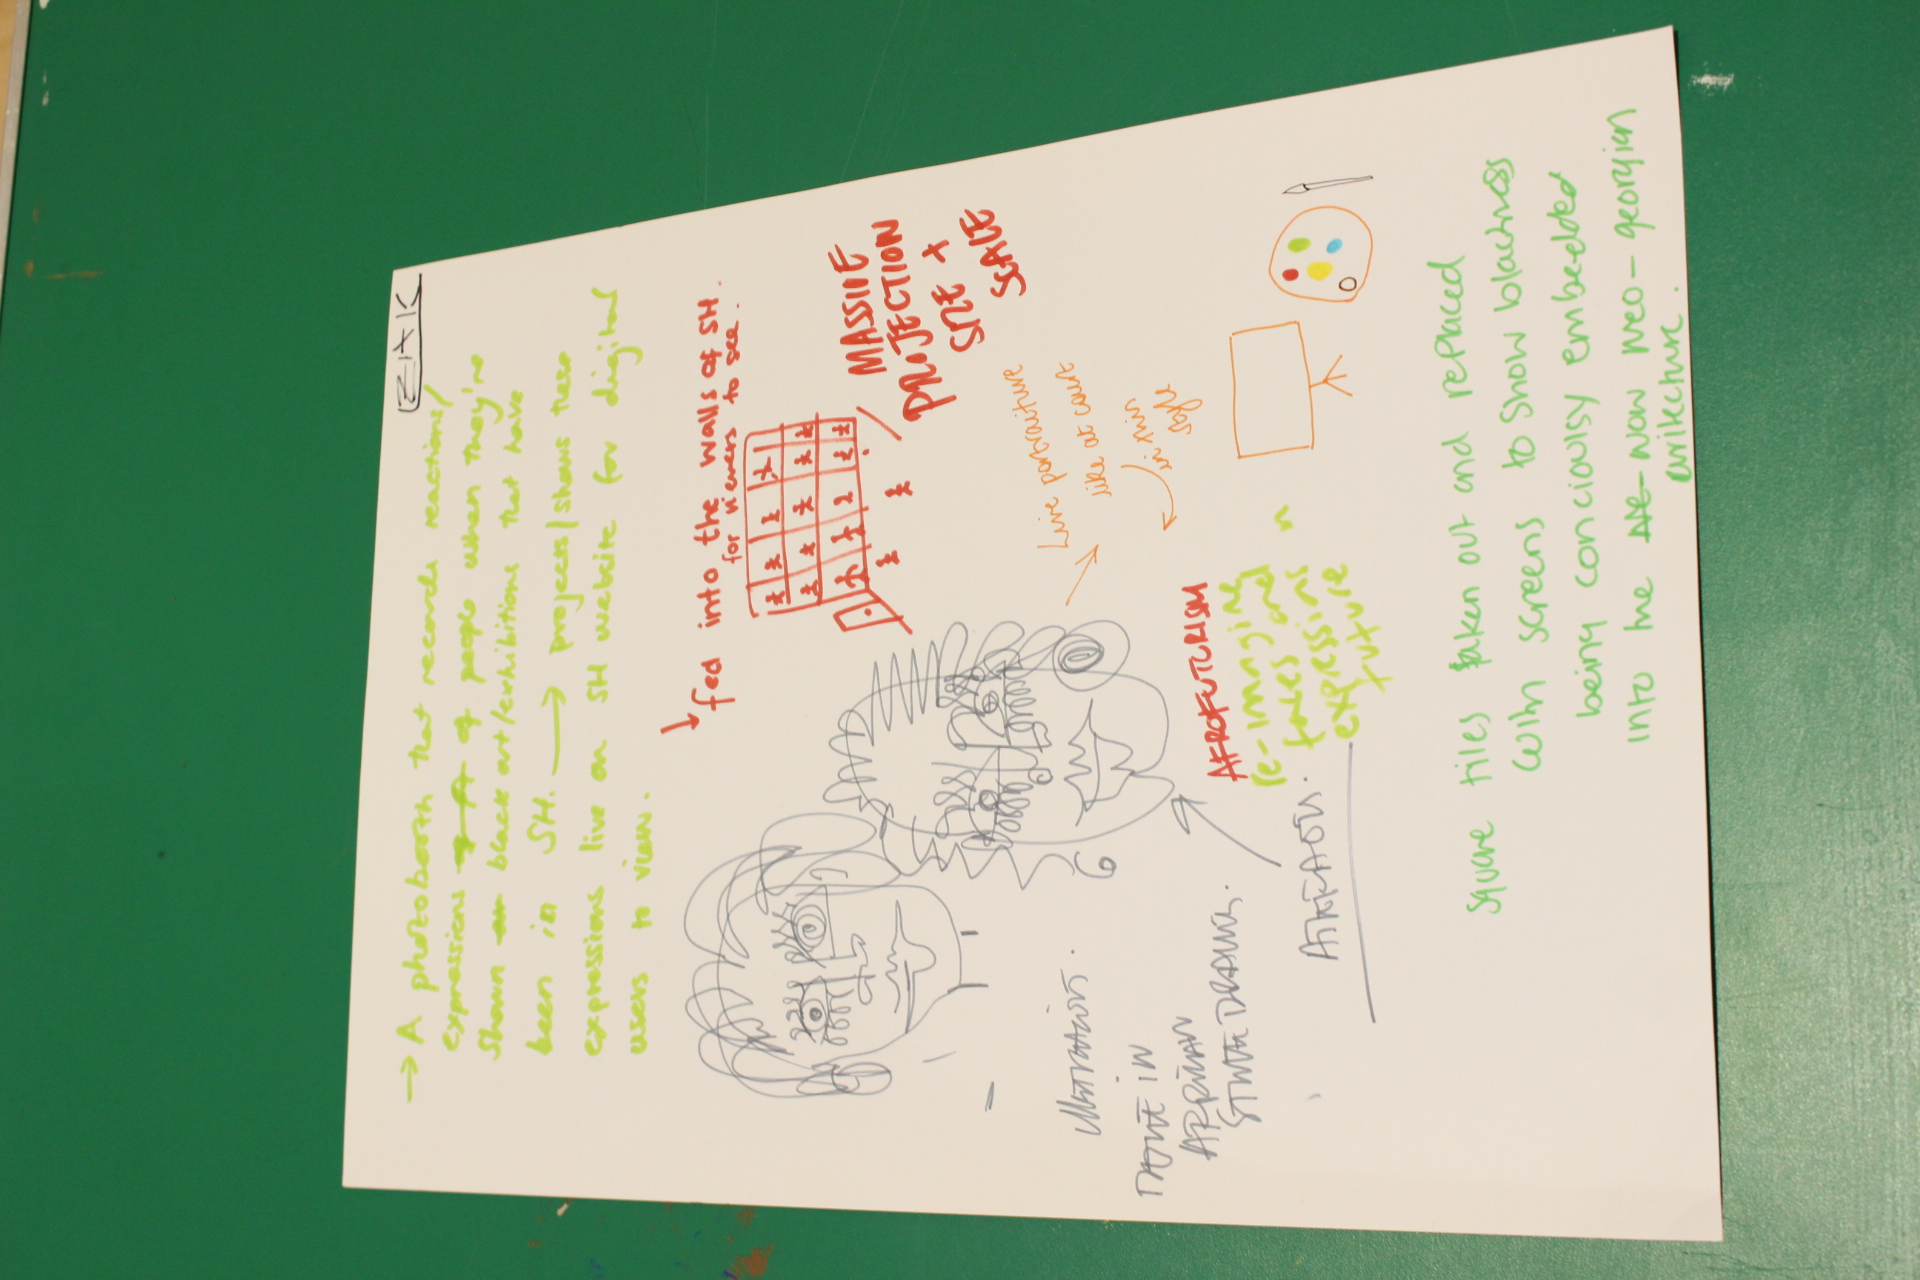 → A photobooth that records reactions/
expressions of people when they're
shown black art/exhibitions that have
been in SH. → projects/shows these
expressions live on SH website for digital
users to view.
↓ fed into the walls of SH.
for viewers to see.
MASSIVE
PROJECTION
SIZE +
SCALE
Live portraiture
like at court
in this
AFROFUTURISM
re-imagining
faces and
expressions in
future
DONE IN
AFRICAN
square tiles taken out and replaced
with screens to show blackness
being conciously embedded
into the now neo-georgian